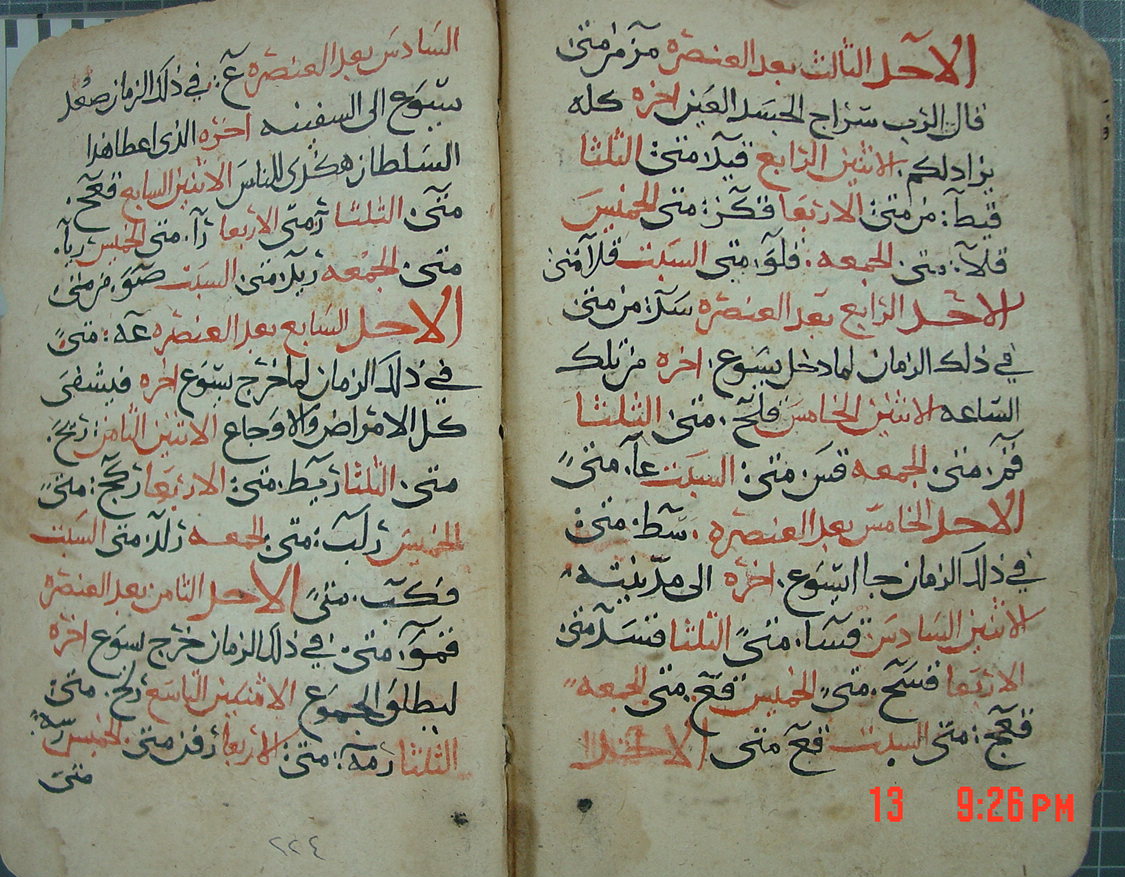 الاحد الثالث بعد العنصره من مر متى
قال الرب سراج الجسد العين اخره كله
يزاد لكم. الاثنين الرابع قيد متى الثلثا
قيط: من متى: الاربعا قكز: متى الخميس
قلا: متى: الجمعه: قلو: متى السبت قلا متى
الاحد الرابع بعد العنصره سد: من متى
في ذلك الزمان لما دخل يسوع: اخره من تلك
الساعه الاثنين الخامس قلح: متى: الثلثا
قمر: متى: الجمعه قس: متى: السبت عا: متى
الاحد الخامس بعد العنصره: سط: متى
في ذلك الزمان جا ايسوع: اخره الى مدينته
الاثنين السادس قسا: متى الثلثا قسد متى
الاربعا قسح: متى الخميس قع: متى الجمعه
قعج: متى السبت قع متى الاحد
السادس بعد العنصره ع: في ذلك الزمان صعد
يسوع الى السفينه اخره الذى اعطا هدا
السلطان هكدى للناس الاثنين السابع قعج:
متى: الثلثا ر متى الاربعا را: متى الخميس ريا:
متى: الجمعه ريد: متى: السبت صو: من متى
الاحد السابع بعد العنصره عه: متى
في ذلك الزمان لما خرج يسوع اخره فيشفى
كل الامراض والاوجاع الاثنين الثامن ريح:
متى: الثلثا ريط: متى: الاربعا ركج: متى
الخميس رلب: متى: الجمعه رلد: متى السبت
فكب: متى الاحد الثامن بعد العنصره
قمو: متى: في ذلك الزمان خرج يسوع اخره
ليطلق الجموع الاثنين التاسع رلح: متى
الثلثا رمه: متى: الاربعا رفن متى: الخميس رسه:
متى
٢٢٤
13 9:26 PM